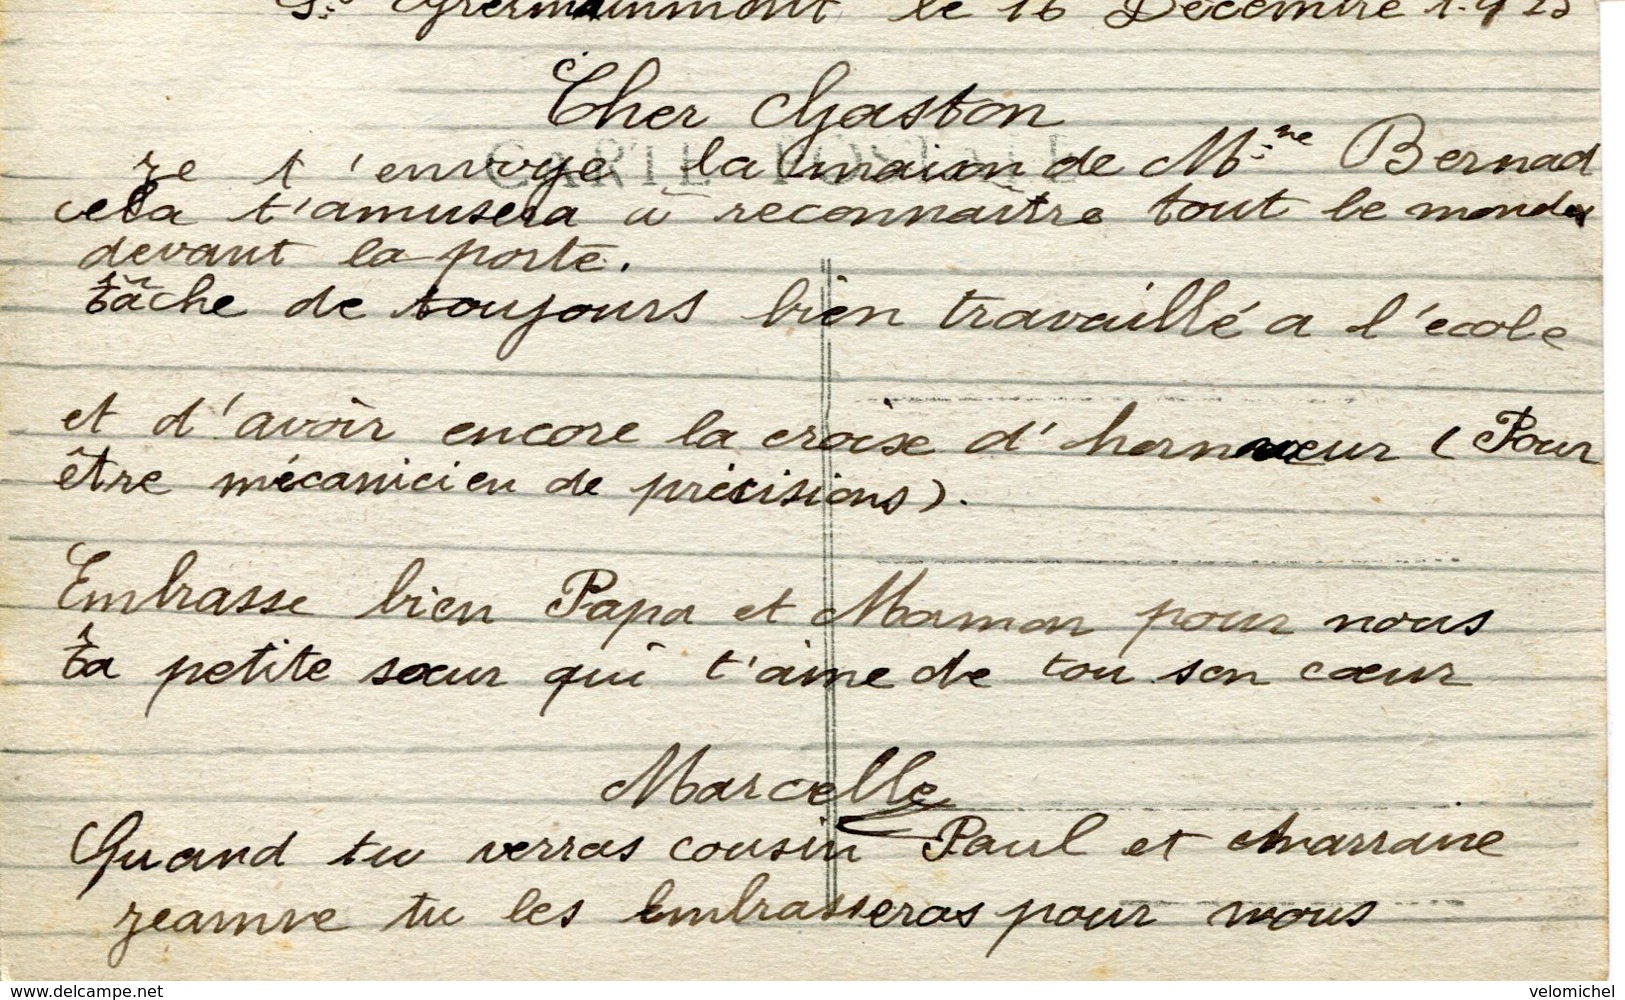 St Germainmont le 16 Décembre 1.923
Cher Gaston
CARTE POSTALE
je t'envoye la maison de Mme Bernad
cela t'amusera à reconnaître tout le monde
devant la porte.
tâche de toujours bien travaillé a l'ecole
et d'avoir encore la croise d'honneur (Pour
être mécanicien de précisions).
Embrasse bien Papa et Maman pour nous
ta petite sœur qui t'aime de tou son cœur
Marcelle
Quand tu verras cousin Paul et Marraine
jeanne tu les embrasseras pour nous
www.delcampe.net
velomichel